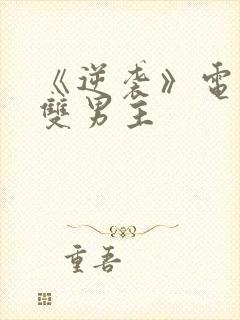 《逆袭》電
雙男主
重吾